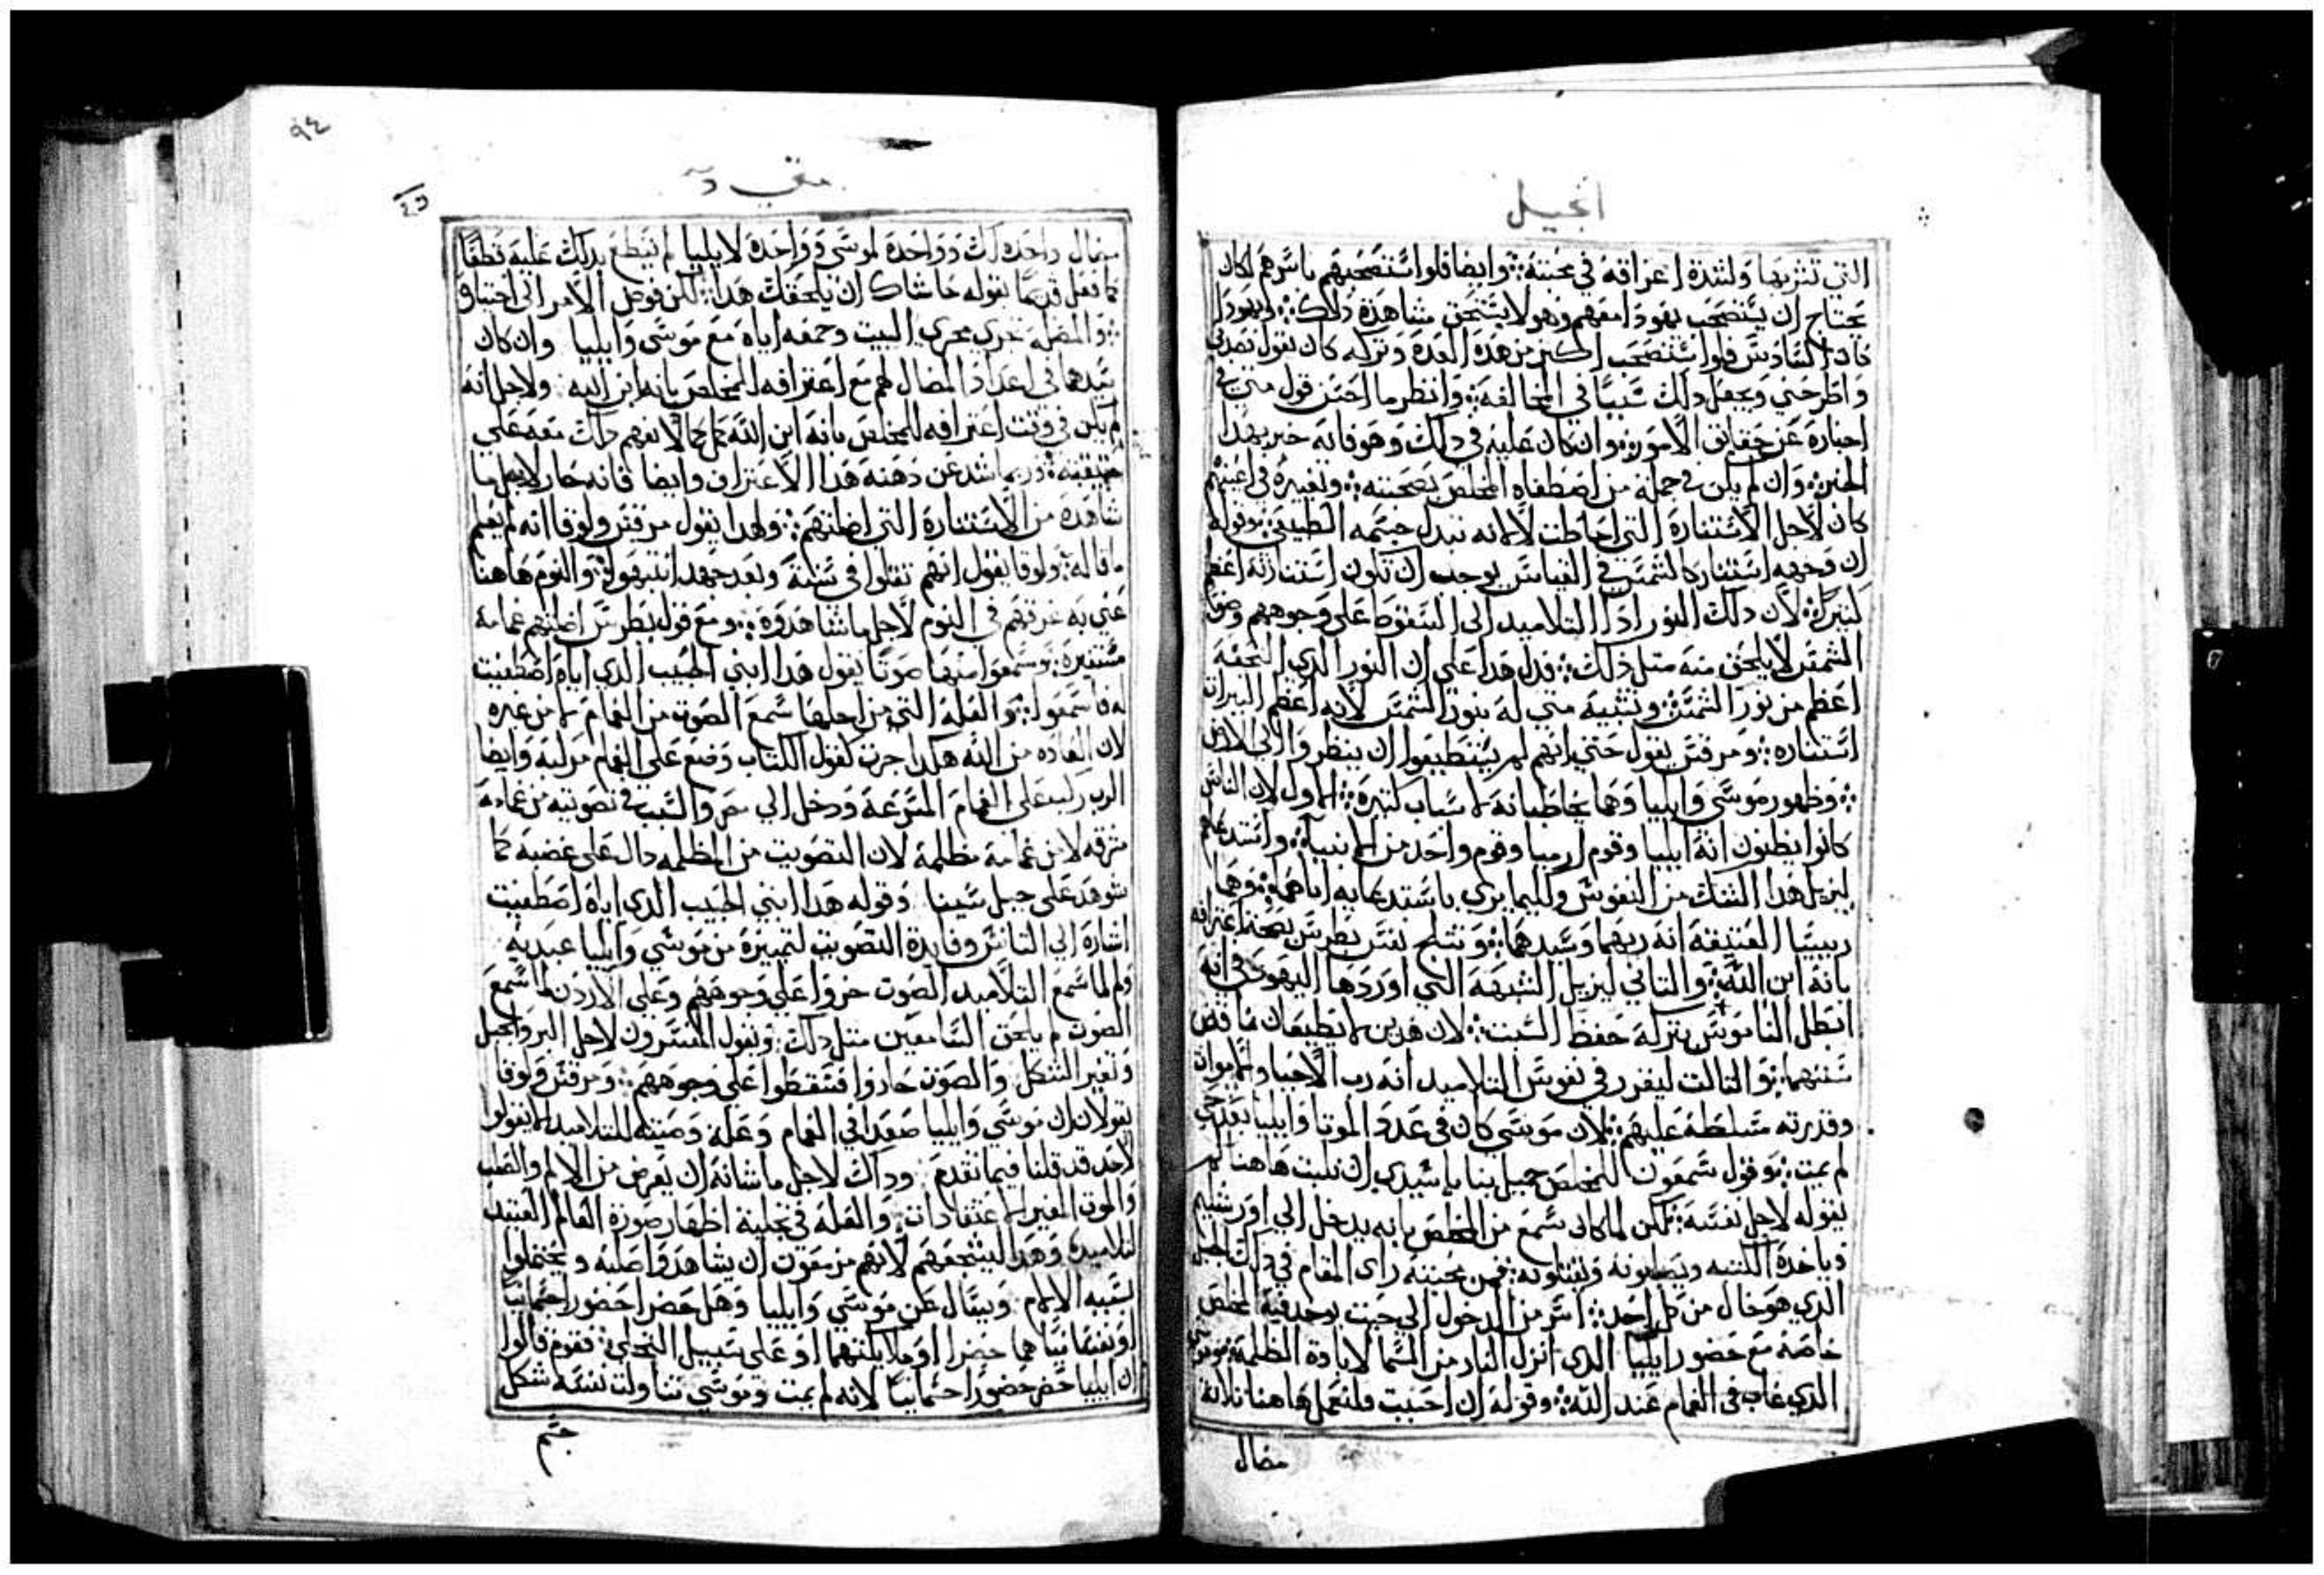 انجيل
التي نثربها ولشدة اغراقه في محبته ؞ وايضا فلو استصحبهم باسرهم لكان
يحتاج ان يستصحب يهودا معهم وهو لا يستحق مشاهدة ذلك ؞ ويهودا
كان السادس فلو استصحب اكثر من هذه العدة وتركه كان يقول
واطرحني ويجعل ذلك سببا في المخالفة ؞ وانظر ما احسن قول متي في
اخباره عن حقايق الامور ؞ وان كان عليه في ذلك وهو فانه خبر بهذا
الخبر ؞ وان لم يكن في جملة من اصطفاه المخلص بصحبته ؞ وتغييره في اعينهم
كان لاجل الاستنارة التي احاطت لا لانه تبدل جسمه الطبيعي ؞ وقوله
ان وجهه استنار كالشمس في القياس يوجب ان تكون استنارته اعظم
كثيرا ؞ لان ذلك النور ادا التلاميد الي السقوط علي وجوههم وضو
الشمس لا يلحق منه مثل ذلك ؞ فدل هدا علي ان النور الدي التحفه
اعظم من نور الشمس ؞ وتشبيه متي له بنور الشمس لانه اعظم النيرات
استناره ؞ ومرقس يقول حتي انهم لم يستطيعوا ان ينظروا الي الارض
؞ وظهور موسي وايليا وهما يخاطبانه لاسباب كثيرة ؞ الاول لان الناس
كانوا يظنون انه ايليا وقوم ارميا وقوم واحد من الانبياء ؞ واستدعاهم
ليزيل هدا الشك من النفوس وليما يري باستدعايه اياهما ؞ وهما
ربيسا العتيقة انه ربهما وسيدهما ؞ ويثلج نفس بطرس بصحة اعترافه
بانه ابن الله ؞ والثاني ليزيل الشبهة التي اوردها اليهود في انه
ابطل الناموس بتركه حفظ السبت ؞ لان هدين لا يطيقان ناقض
سنتهما ؞ والثالث ليقرر في نفوس التلاميد انه رب الاحيا والاموات
وقدرته متسلطة عليهم ؞ لان موسي كان في عدد الموتا وايليا بعد حي
لم يمت ؞ وقول شمعون للمخلص جميل بنا ياسيدي ان نلبث هاهنا لم
يقوله لاجل نفسه ؞ لكن لما كان سمع من المخلص بانه يدخل الي اورشليم
وياخدة الكتبه ويصلبونه ويقتلونه ؞ فمن محبته راي المقام في ذلك الجبل
الدي هو خال من كل احد ؞ اسر من الدخول الي حيث يوجد فيه المخلص
خاصة مع حضور ايليا الدي انزل النار من السما لابادة الظلمة
الدي غاب في الغمام عند الله ؞ وقوله ان احببت فلنعمل هاهنا ثلاثة
مضال
متي
٩٤
مضال واحده لك وواحدة لموسي وواحدة لايليا لم يقطع بذلك عليه قطعا
كما فعل قديما بقوله حاشاك ان يلحقك هدا ؞ لكن فوض الامر الي اختياره
؞ والمضله تجري مجري البيت وجمعه اياه مع موسي وايليا وان كان
في اعداد المضال لهم مع اعترافه للمخلص بانه ابن الله ولاجل انه
لم يكن في وقت اعترافه للمخلص بانه ابن الله لا يفهم ذلك معه علي
حقيقته ؞ وربما شد عن دهنه هدا الاعتراف وايضا فانه حار لاجل ما
شاهده من الاستنارة التي اضلتهم ؞ ولهدا يقول مرقس ولوقا انه لم يعلم
ما قاله ؞ ولوقا يقول انهم ثقلوا في سنة وبعد جهد انتبهوا ؞ والنوم هاهنا
عني به غرقهم في النوم لاجل ما شاهدوه ؞ ومع قول بطرس اضلتهم غمامة
مستنيره ؞ وسمعوا منها صوتا يقول هدا ابني الحبيب الدي اياه اصطفيت
له فاسمعوا ؞ والعلة التي من اجلها سمع الصوت من الغمام لا من غيره
لان العاده من الله هكدا جرت كقول الكتاب وضع علي الغمام مركبه وايضا
الرب ركب علي الغمام المسرعة ودخل الي مصر والسبب في تصويته من غمامة
مشرقه لا من غمامة مظلمة لان التصويت من المظلمه دال علي غضبه كما
شوهد علي جبل سينا وقوله هدا ابني الحبيب الدي اياه اصطفيت
اشارة الي الناس وفايدة التصويت لتمييزه من موسي وايليا عبديه
ولم لما سمع التلاميد الصوت خروا علي وجوههم وعلي الاردن لما سمع
الصوت لم يلحق السامعين مثل ذلك ؞ ويقول المفسرون لاجل البر والجبل
وتغير الشكل والصوت حاروا فسقطوا علي وجوههم ؞ ومرقس ولوقا
يقولان ان موسي وايليا صعدا في الغمام وعلة وصيته للتلاميد الا يقولوا
لاحد قد قلنا فيما تقدم وداك لاجل ما شانه ان يعرض من الالم والصلب
والموت المغير الاعتقادات ؞ والعلة في تجليه اظهار صورة العالم العتيد
لتلاميده وهدا ليشجعهم لانهم مزمعون ان يشاهدوا صلبه ويحتملوا
بسببه الالام ويسال عن موسي وايليا وهل حضرا حضورا جسمانيا
او نفسانيا هما حضرا او ملايكتهما او علي سبيل التجلي ؞ فقوم قالوا
ان ايليا حضر حضورا جسمانيا لانه لم يمت وموسي تناولت نفسه شكل
جسم